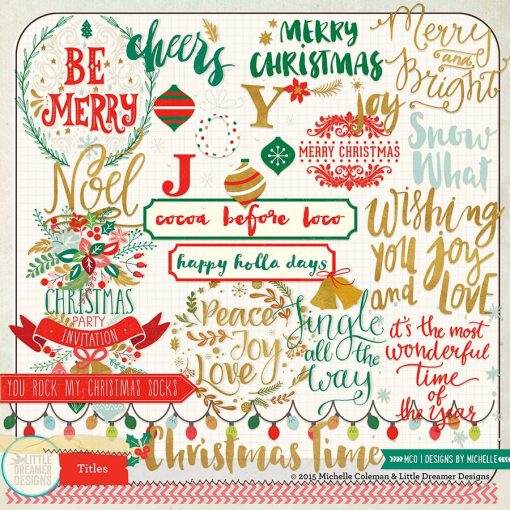 BE
MERRY
cheers
MERRY
CHRISTMAS
Merry
and
Bright
Y
joy
MERRY CHRISTMAS
Snow
What
Noel
J
cocoa before loco
happy holla days
Wishing
you joy
and LOVE
CHRISTMAS
PARTY
INVITATION
Peace
Joy
Love
Jingle
all the
Way
it's the most
wonderful
time
of the
year
YOU ROCK MY CHRISTMAS SOCKS
Christmas Time
LITTLE
DREAMER
DESIGNS
Titles
MCO | DESIGNS BY MICHELLE
© 2015 Michelle Coleman & Little Dreamer Designs